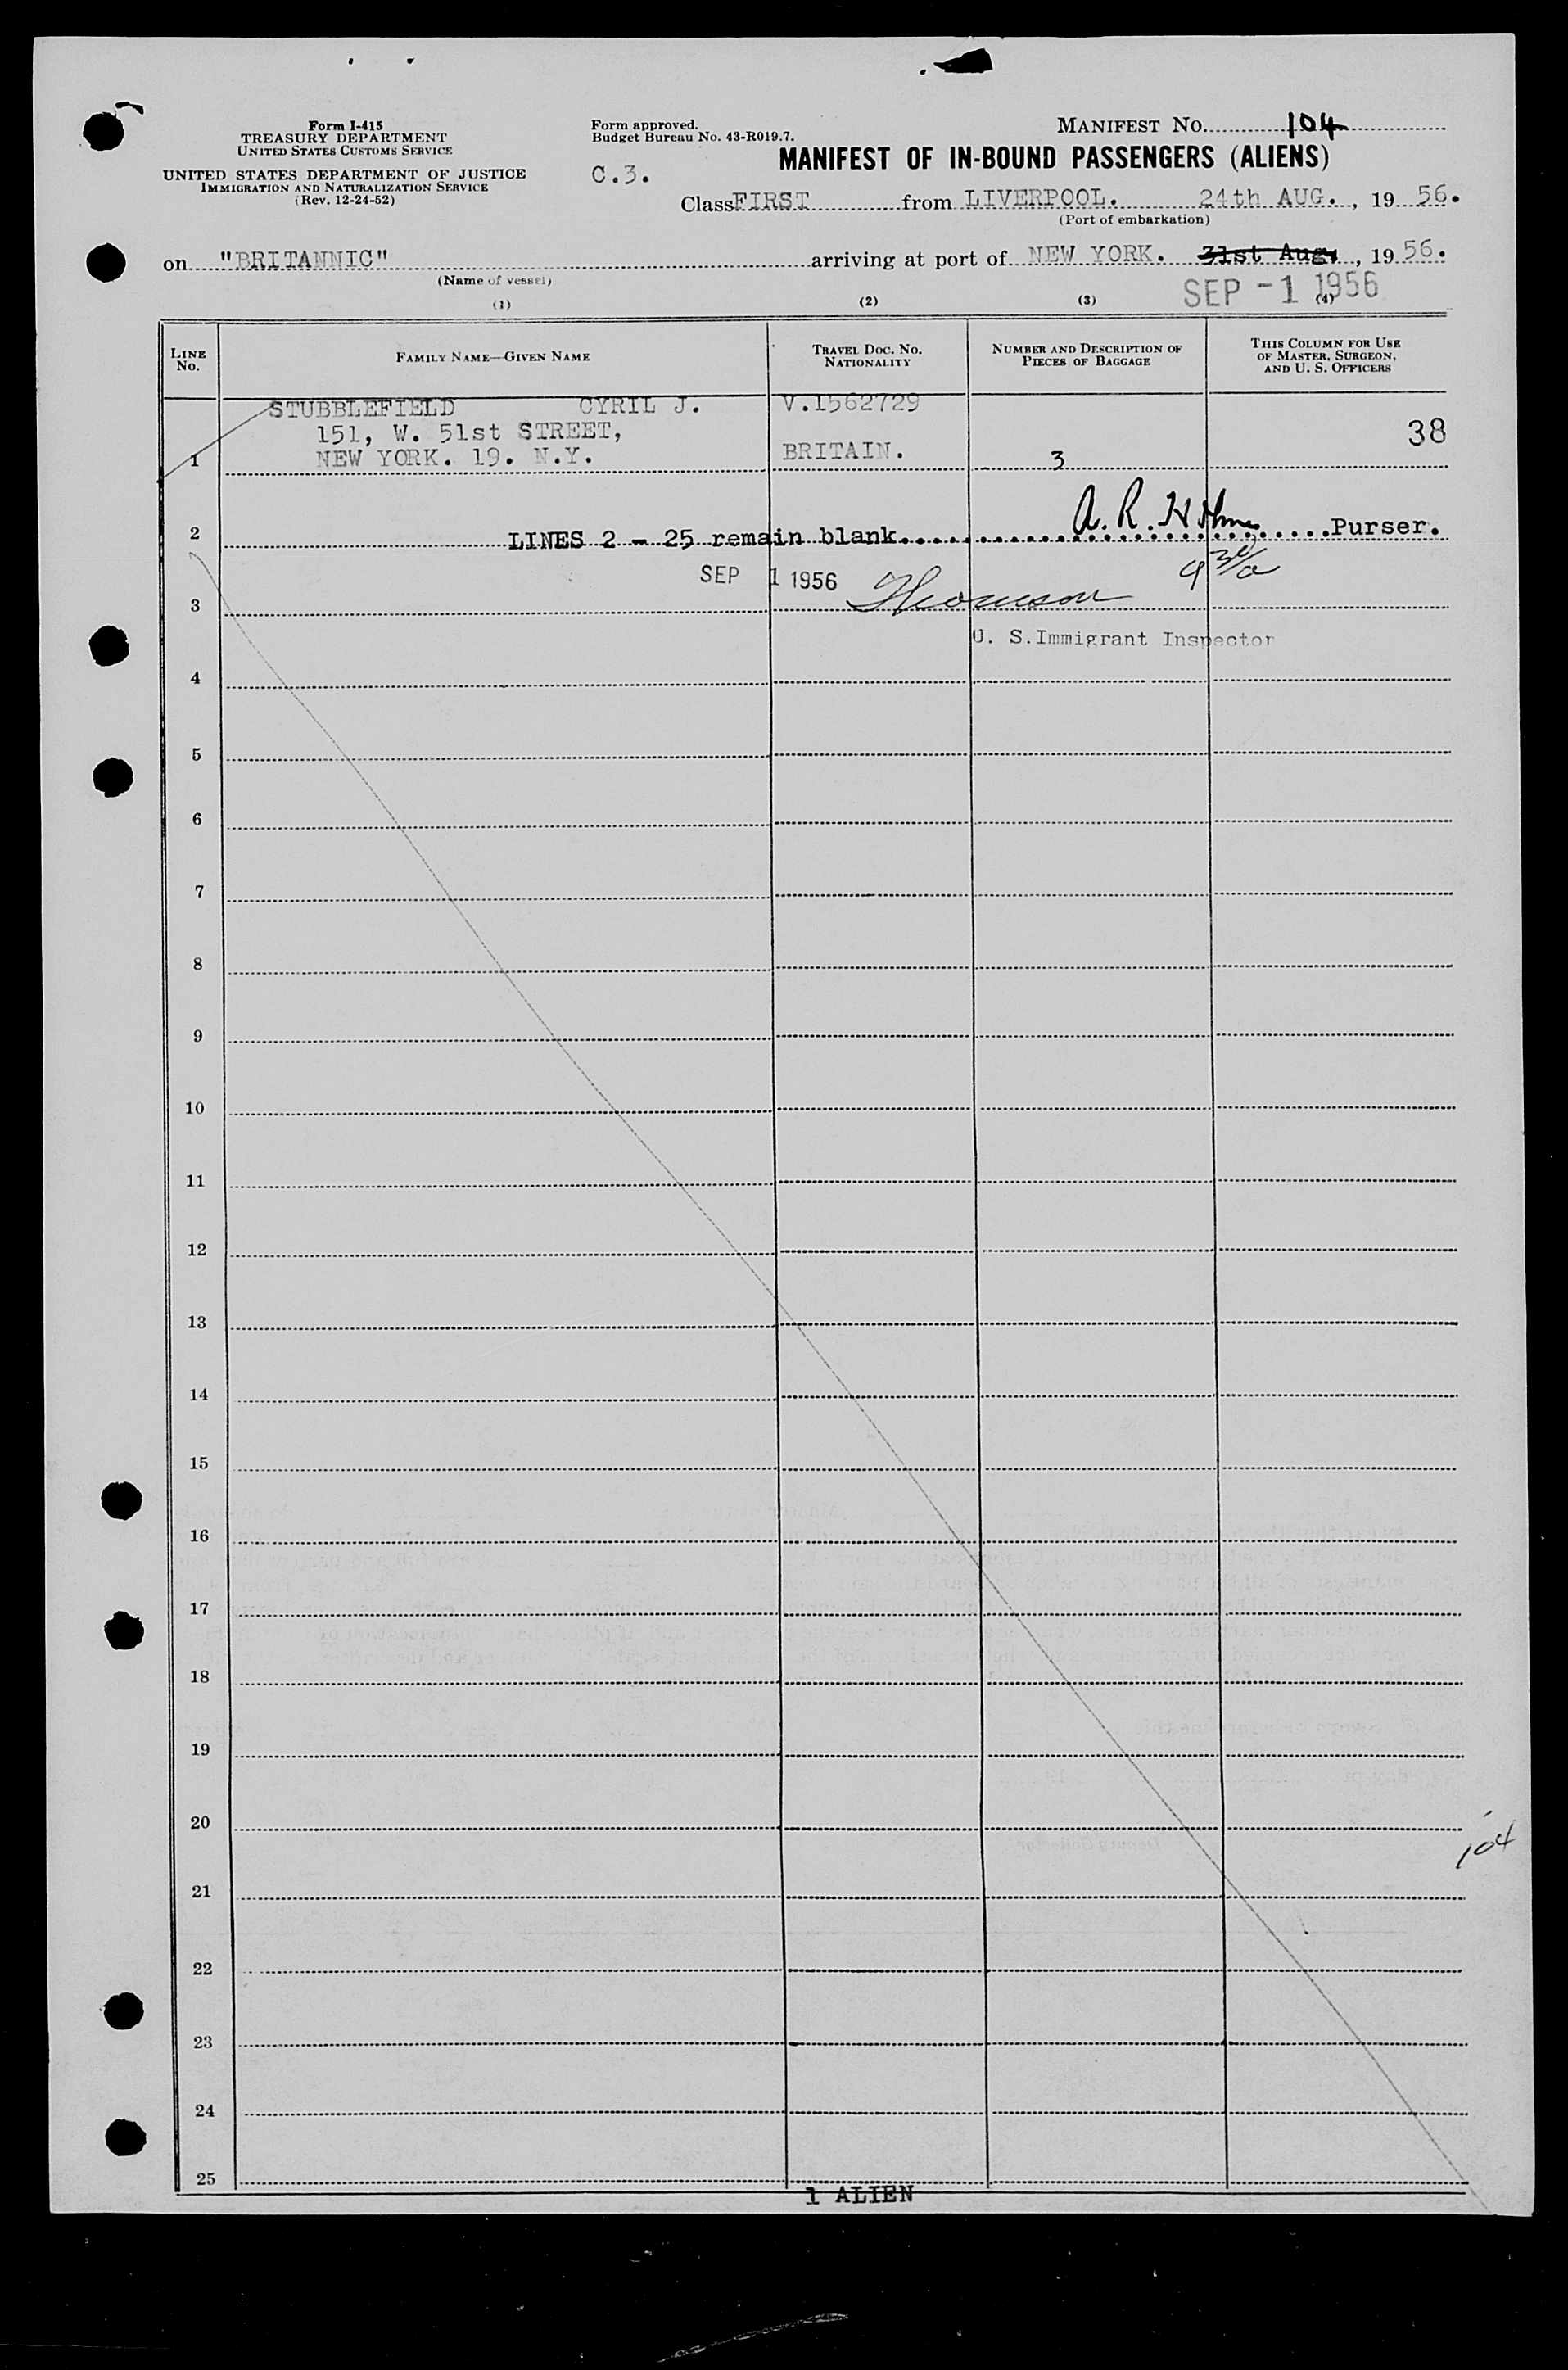 Form I-415
TREASURY DEPARTMENT
UNITED STATES CUSTOMS SERVICE
UNITED STATES DEPARTMENT OF JUSTICE
IMMIGRATION AND NATURALIZATION SERVICE
(Rev. 12-24-52)
Form approved.
Budget Bureau No. 43-R019.7.
C.3.
MANIFEST NO. 104
MANIFEST OF IN-BOUND PASSENGERS (ALIENS)
Class FIRST from LIVERPOOL. 24th AUG., 1956.
(Port of embarkation)
on "BRITANNIC" arriving at port of NEW YORK. 31st Aug, 1956.
(Name of vessel)
SEP -1 1956
(1) (2) (3) (4)
LINE No.
FAMILY NAME—GIVEN NAME
TRAVEL DOC. NO. NATIONALITY
NUMBER AND DESCRIPTION OF PIECES OF BAGGAGE
THIS COLUMN FOR USE OF MASTER, SURGEON, AND U. S. OFFICERS
STUBBLEFIELD CYRIL J. V.1562729
151, W. 51st STREET, 38
1 NEW YORK. 19. N.Y. BRITAIN. 3
2 LINES 2 - 25 remain blank A. R. Purser.
SEP 1 1956 9 30/a
3
U. S. Immigrant Inspector
4
5
6
7
8
9
10
11
12
13
14
15
16
17
18
19
20
104
21
22
23
24
25
1 ALIEN